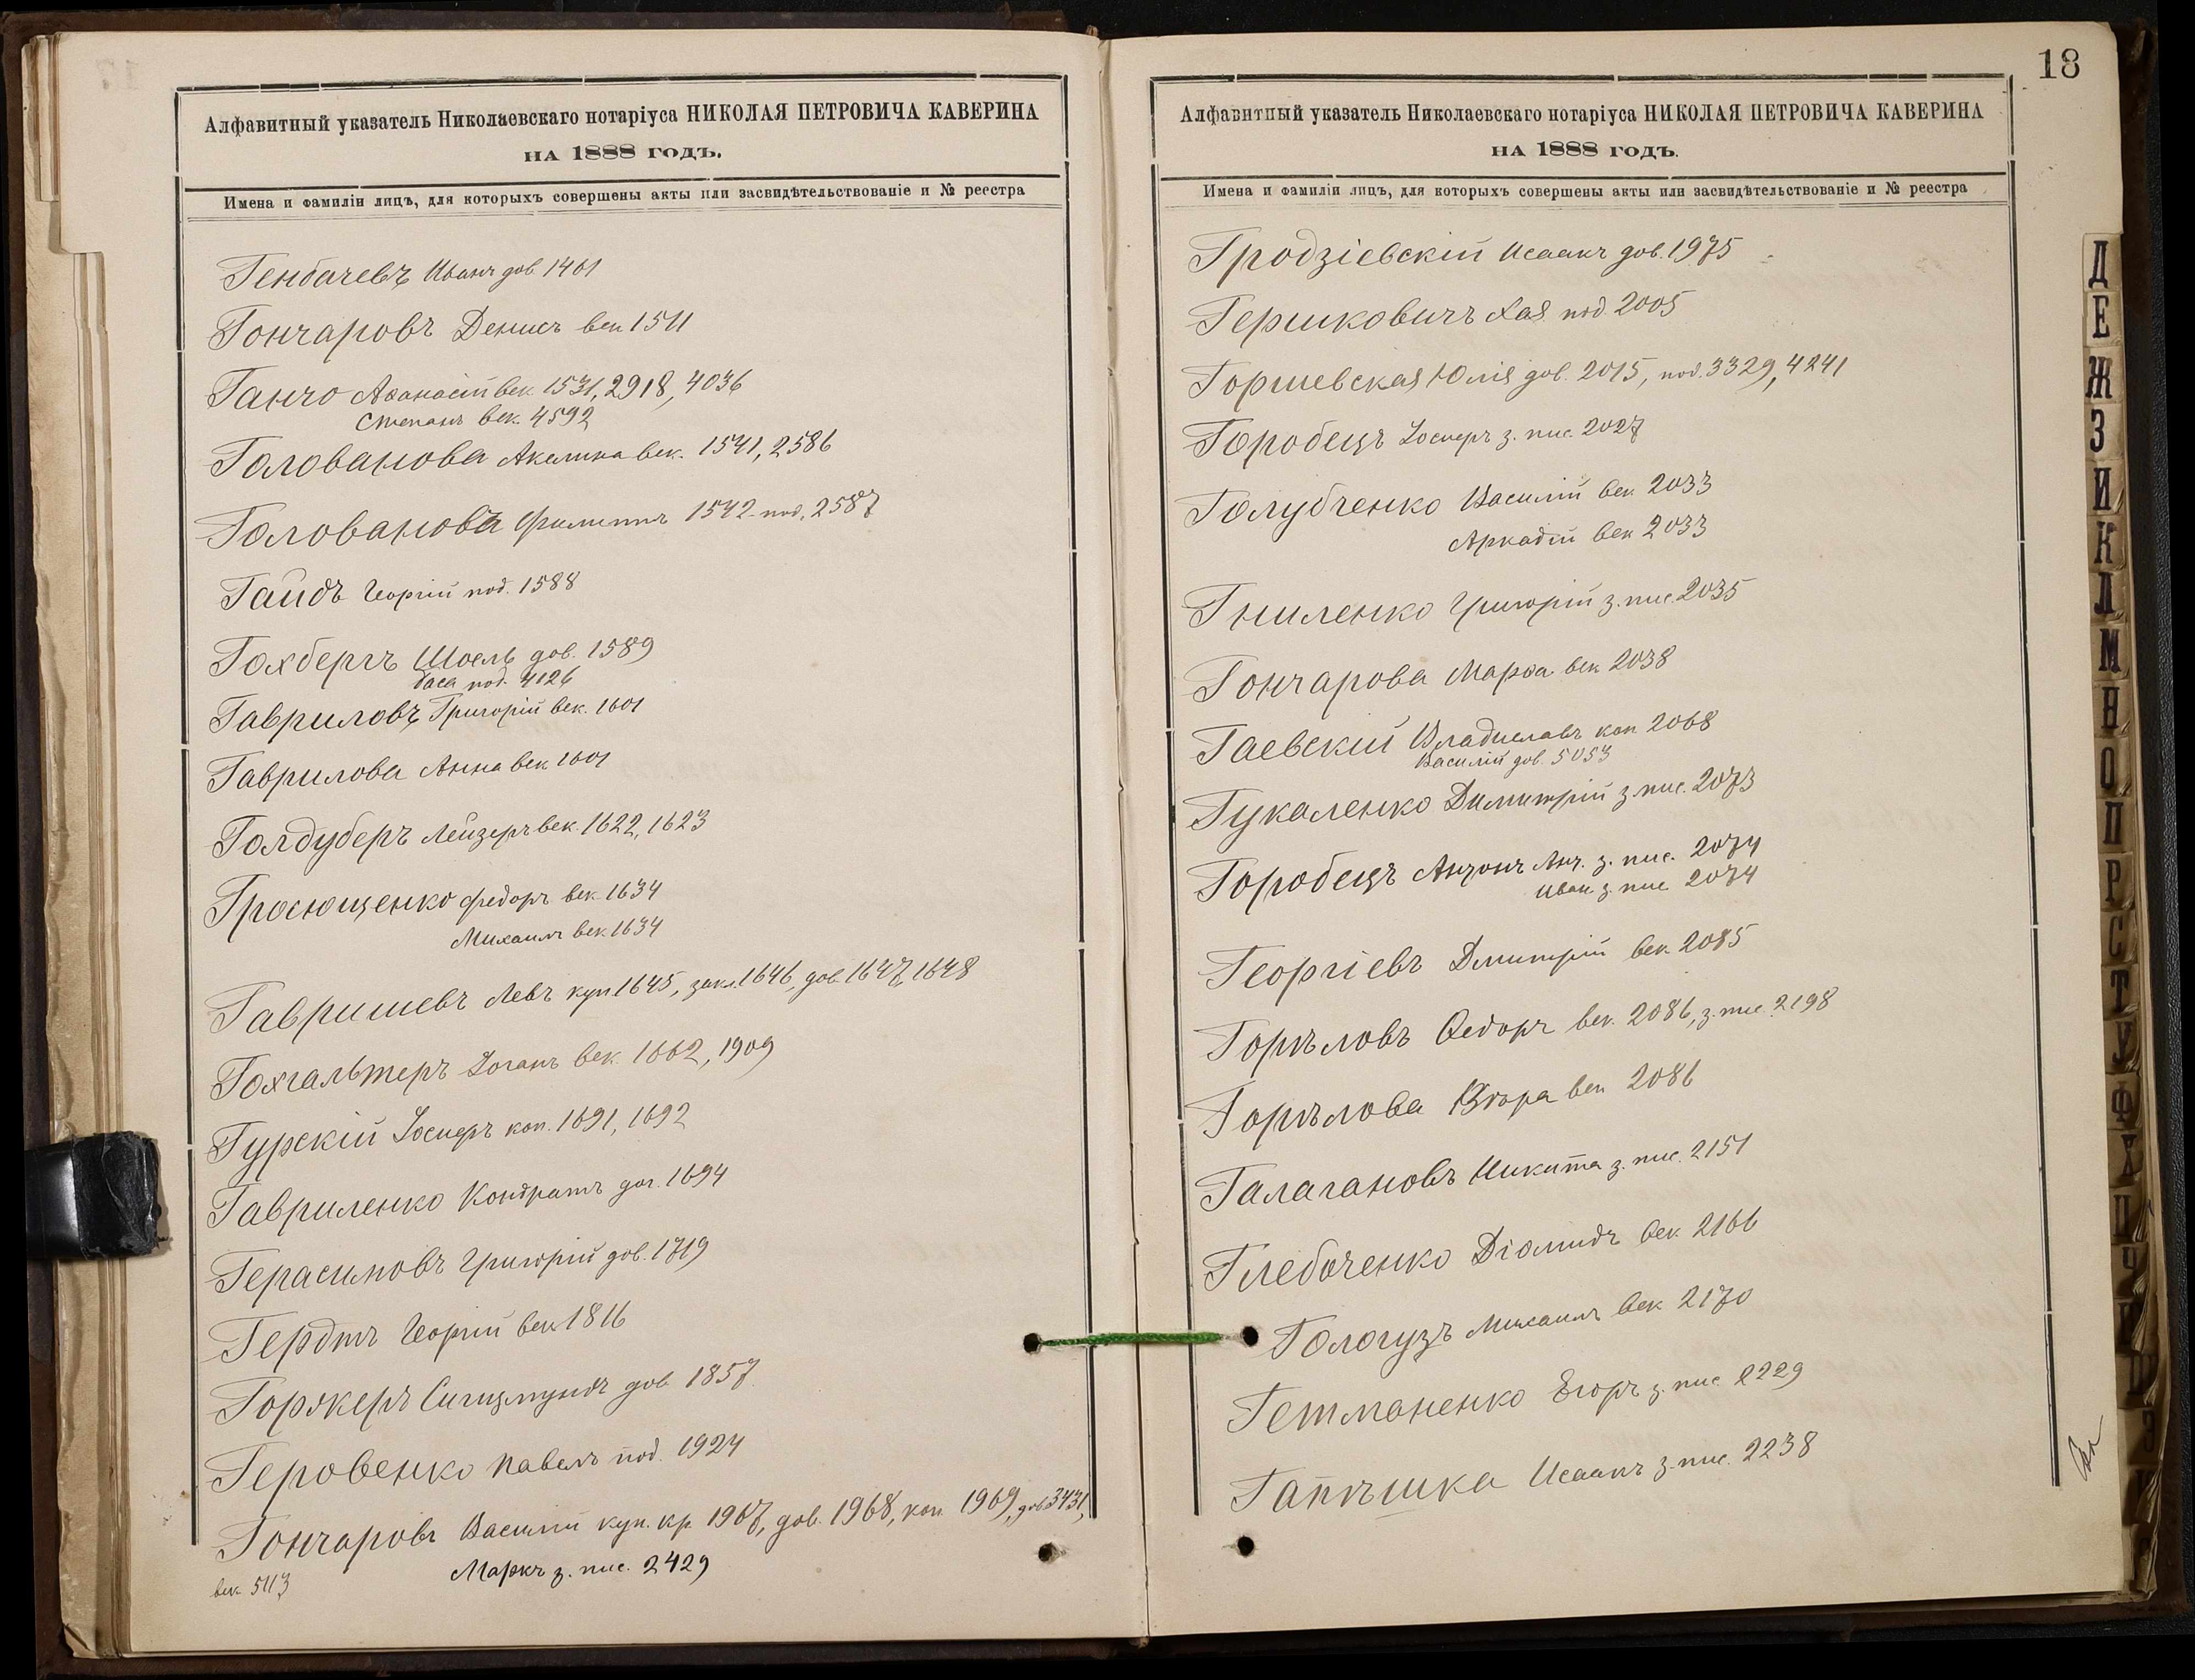 Алфавитный указатель Николаевскаго нотаріуса НИКОЛАЯ ПЕТРОВИЧА КАВЕРИНА
НА 1888 ГОДЪ.
Имена и фамиліи лицъ, для которыхъ совершены акты или засвидѣтельствованіе и № реестра
Генбачевъ Иванъ дов. 1401
Гончаровъ Денисъ век. 1511
Ганчо Аѳанасій век. 1531, 2918, 4036
Степанъ век. 4592
Голованова Акелина век. 1541, 2586
Головановъ Филиппъ 1542 под. 2587
Гайдъ Георгій под. 1588
Гохбергъ Шоель дов. 1589
Баса под. 4126
Гавриловъ Григорій век. 1601
Гаврилова Анна век. 1601
Голдуберъ Лейзеръ век. 1622, 1623
Гросющенко Федоръ век. 1634
Михаилъ век. 1634
Гавришевъ Левъ куп. 1645, закл. 1646, дов. 1647, 1648
Гохгальтеръ Іоганъ век. 1662, 1909
Гурскій Іосифъ коп. 1691, 1692
Гавриленко Кондратъ дог. 1694
Герасимовъ Григорій дов. 1719
Гердтъ Георгій век. 1816
Горжеръ Сигизмундъ дов. 1857
Геровенко Павелъ под. 1924
Гончаровъ Василій куп. кр. 1967, дов. 1968, коп. 1969, дов. 3431,
век. 5113 Маркъ з. пис. 2429
18
Алфавитный указатель Николаевскаго нотаріуса НИКОЛАЯ ПЕТРОВИЧА КАВЕРИНА
НА 1888 ГОДЪ.
Имена и фамиліи лицъ, для которыхъ совершены акты или засвидѣтельствованіе и № реестра
Гродзіевскій Исаакъ дов. 1975
Гершковичъ Хая под. 2005
Горшевская Юлія дов. 2015, под. 3329, 4241
Горобецъ Іосифъ з. пис. 2027
Голубченко Василій век. 2033
Аркадій век. 2033
Гниленко Григорій з. пис. 2035
Гончарова Марѳа век. 2038
Гаевский Владиславъ коп. 2068
Василій дов. 5053
Гукаленко Димитрій з. пис. 2073
Горобецъ Антонъ Ант. з. пис. 2074
Иван з. пис. 2074
Георгіевъ Дмитрій век. 2085
Горѣловъ Ѳедоръ век. 2086, з. пис. 2198
Горѣлова Вѣра век. 2086
Галагановъ Никита з. пис. 2151
Глебоченко Діомидъ век. 2166
Гологузъ Михаилъ век. 2170
Гетманенко Егоръ з. пис. 2229
Гапѣшка Исаакъ з. пис. 2238
Д
Е
Ж
З
И
К
Л
М
Н
О
П
Р
С
Т
У
Ф
Х
Ц
Ч